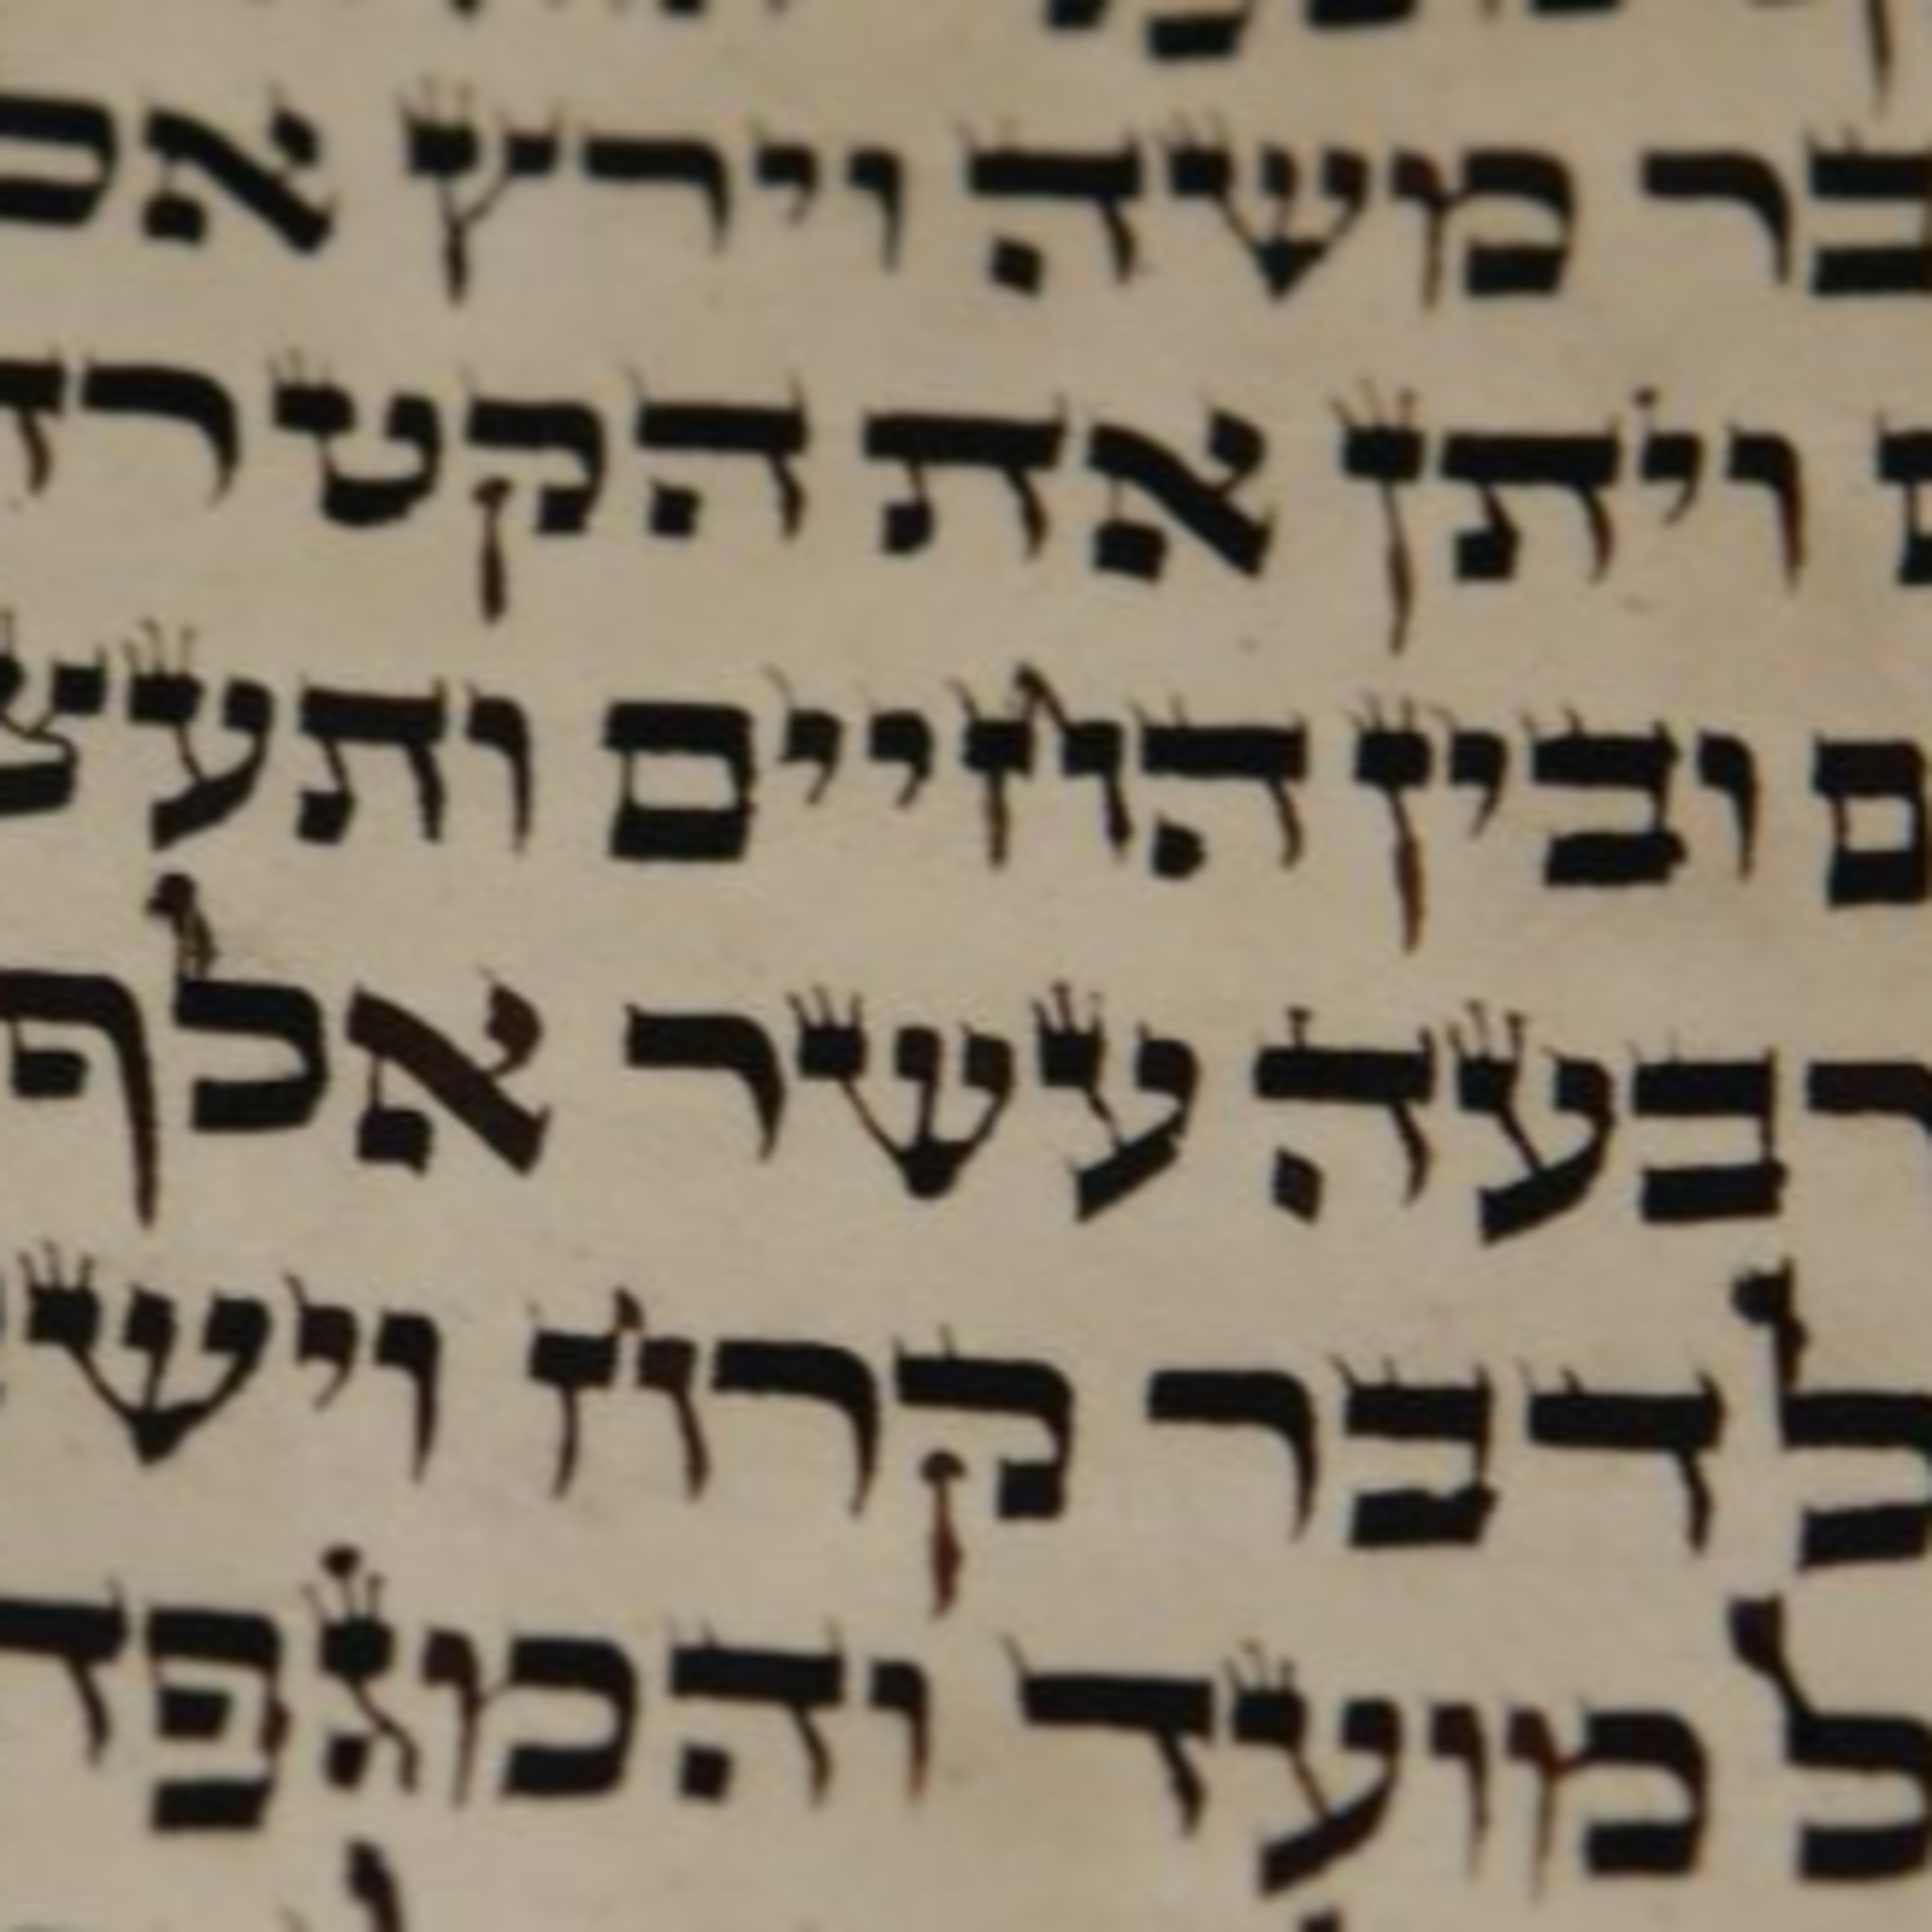 בר משה וירץ א
ויתן את הקטר
ם ובין החיים ותעצ
רבעה עשר אלף
לדבר קרח וישׁ
ל מועד והמגפ